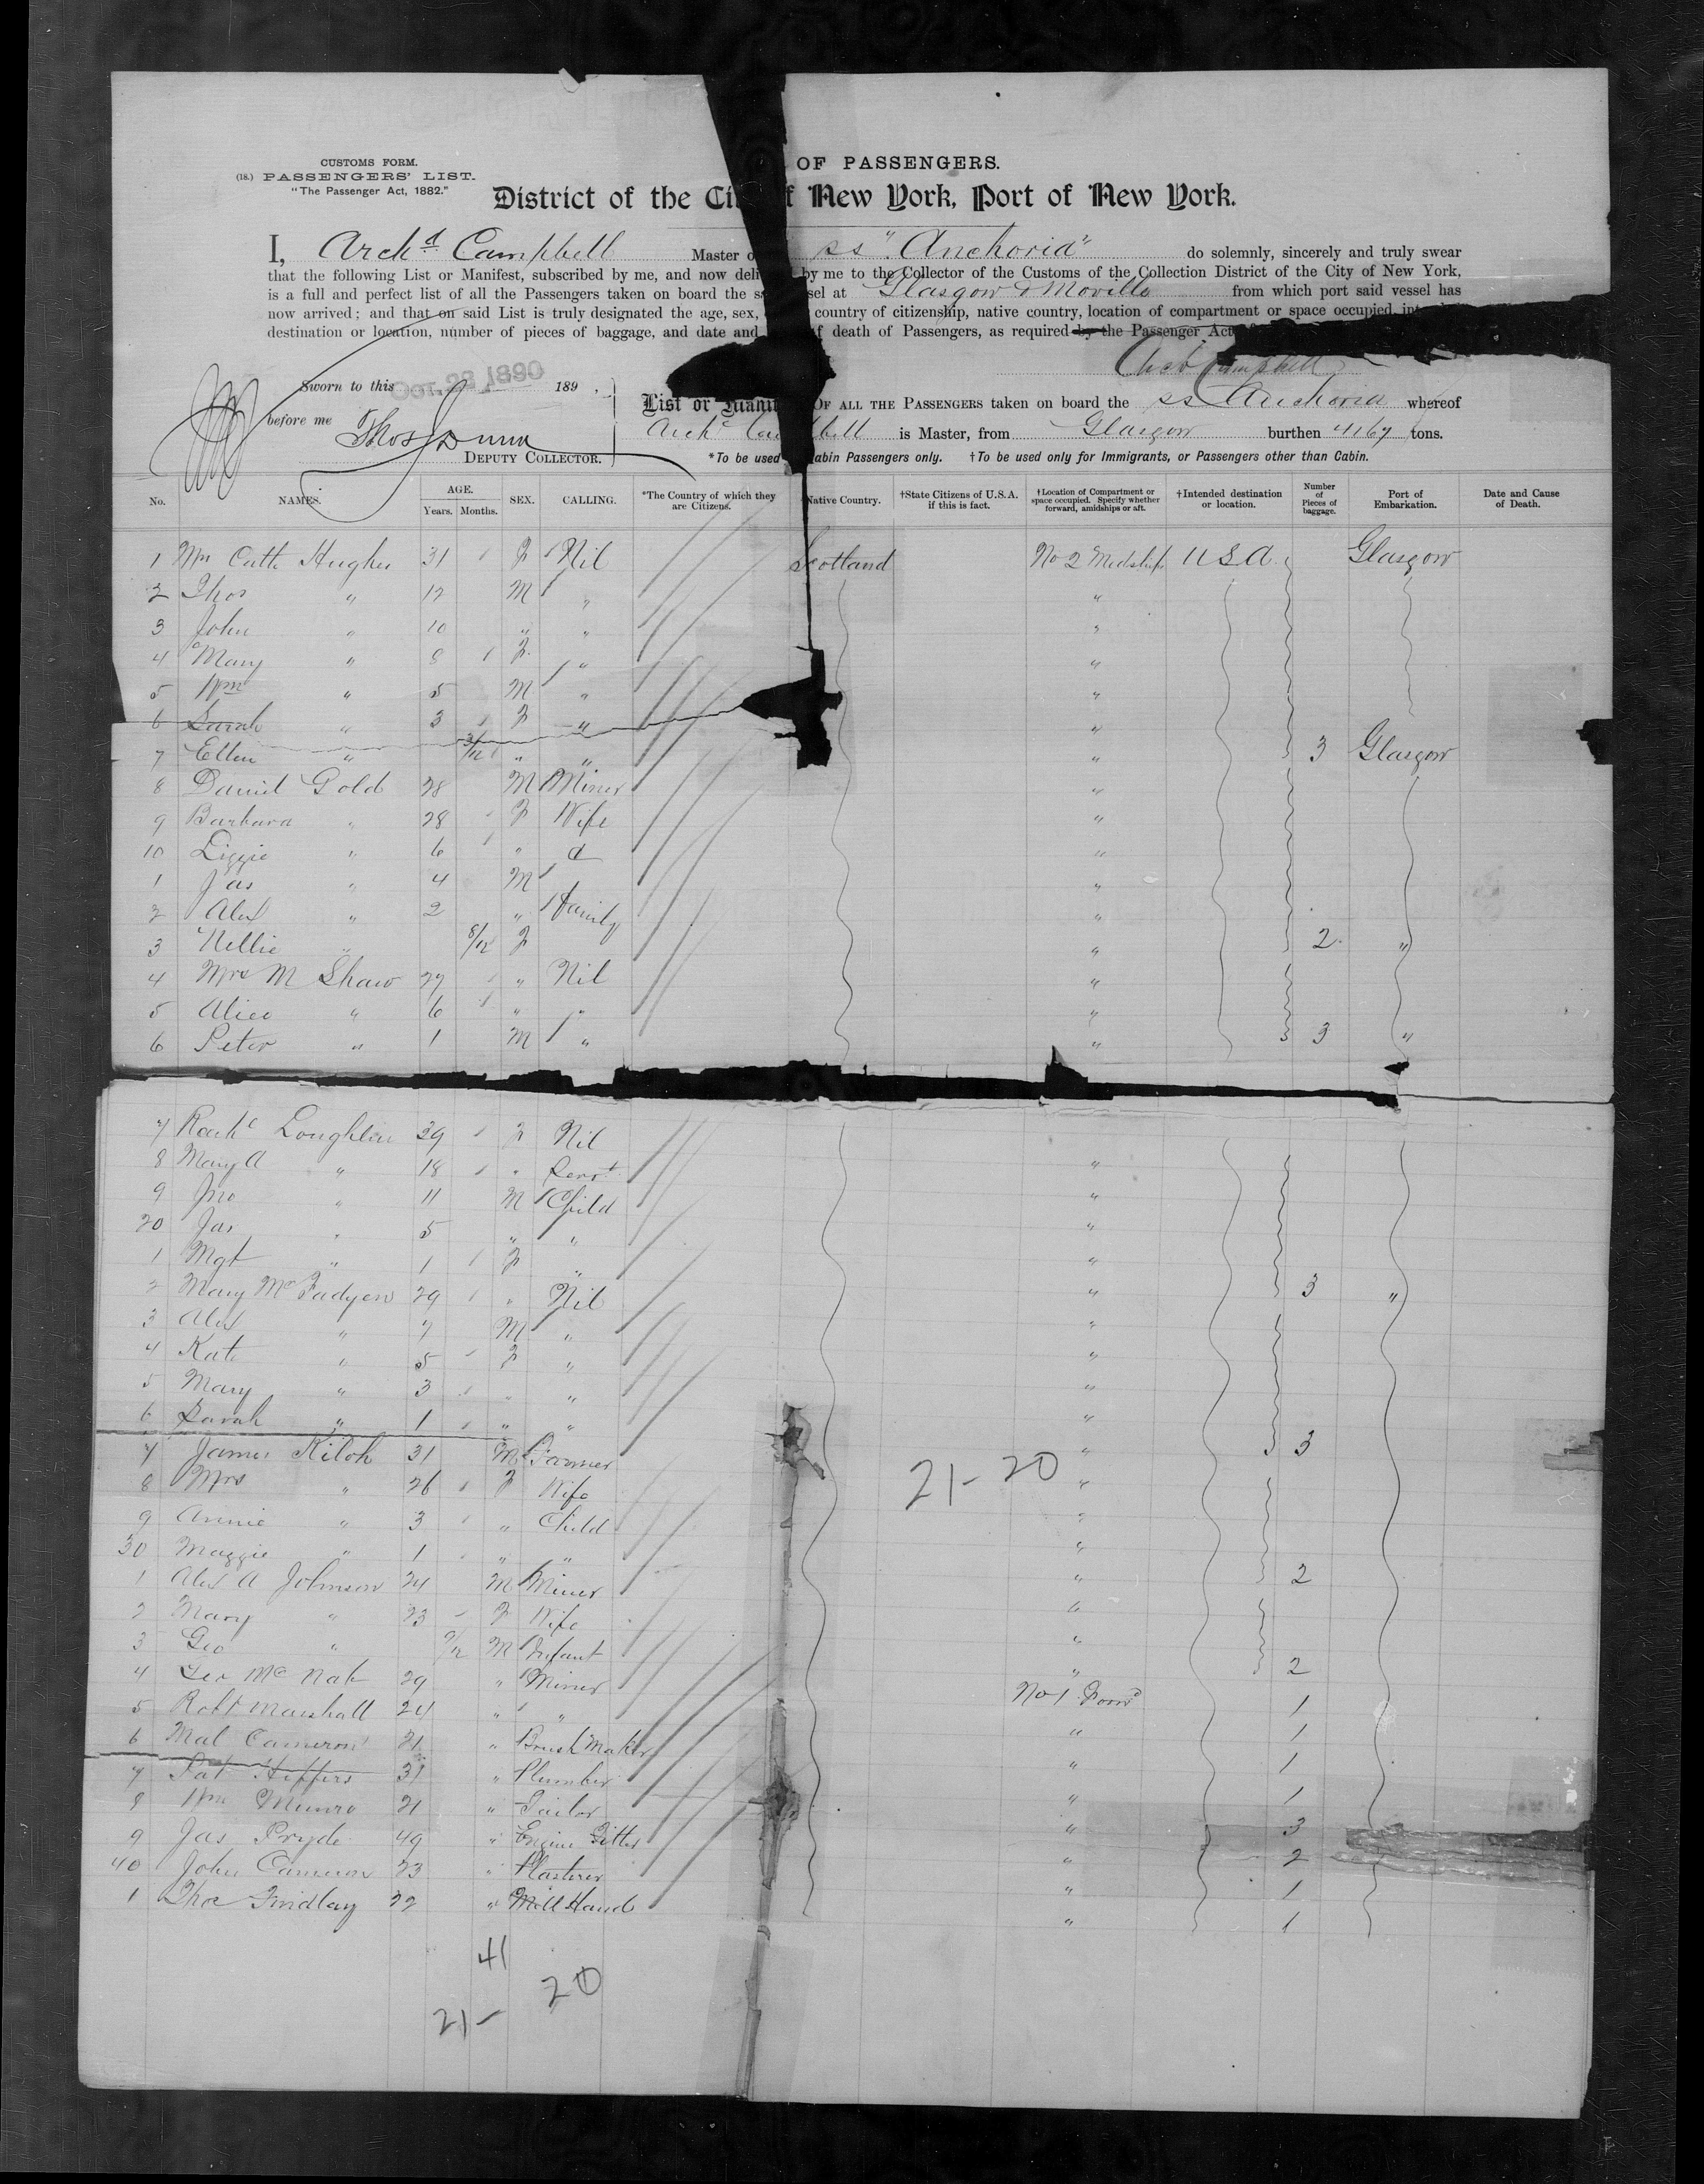 CUSTOMS FORM.
(18.) PASSENGERS' LIST.
"The Passenger Act, 1882."
OF PASSENGERS.
District of the Ci f New York, Port of New York.
I, Archd Campbell Master o ss "Anchoria" do solemnly, sincerely and truly swear
that the following List or Manifest, subscribed by me, and now deli by me to the Collector of the Customs of the Collection District of the City of New York,
is a full and perfect list of all the Passengers taken on board the s sel at Glasgow & Moville from which port said vessel has
now arrived; and that on said List is truly designated the age, sex, country of citizenship, native country, location of compartment or space occupied,
destination or location, number of pieces of baggage, and date and f death of Passengers, as required by the Passenger Act
Arch Campbell
Sworn to this OCT 1890 189 .
before me Thos Dunn
DEPUTY COLLECTOR.
List or Manif OF ALL THE PASSENGERS taken on board the ss Anchoria whereof
Archd Campbell is Master, from Glasgow burthen 4167 tons.
*To be used abin Passengers only. †To be used only for Immigrants, or Passengers other than Cabin.
No. NAMES. AGE. Years. Months. SEX. CALLING. *The Country of which they are Citizens. Native Country. †State Citizens of U.S.A. if this is fact. †Location of Compartment or space occupied. Specify whether forward, amidships or aft. †Intended destination or location. Number of Pieces of baggage. Port of Embarkation. Date and Cause of Death.
1 Mrs Cath Hughes 31 F Nil Scotland No 2 Midship U S A Glasgow
2 Thos " 12 M " "
3 John " 10 " " "
4 Mary " 8 F " "
5 Wm " 5 M " "
6 Sarah " 3 F " "
7 Ellen " 3/12 " " " 3 Glasgow
8 Daniel Gold 28 M Miner "
9 Barbara " 28 F Wife "
10 Lizzie " 6 " "
1 Jas " 4 M "
2 Alex " 2 " Family "
3 Nellie " 8/12 F " 2 "
4 Mrs M Shaw 27 " Nil "
5 Alice " 6 " " "
6 Peter " 1 M " " 3 "
7 Loughlin 39 F Nil
8 Mary A " 18 " Servt "
9 Jno " 11 M Child "
20 Jas " 5 " " "
1 Mgt " 1 F " "
2 Mary McFadyen 29 " Nil " 3 "
3 Alex " 7 M " "
4 Kate " 5 F " "
5 Mary " 3 " " "
6 Sarah " 1 " " "
7 James Kiloh 31 M Farmer " 3
8 Mrs " 26 F Wife "
9 Annie " 3 " Child "
30 Maggie " 1 " " "
1 Alex A Johnson 24 M Miner " 2
2 Mary " 23 F Wife "
3 Geo " 9/12 M Infant "
4 Geo McNab 29 " Miner " 2
5 Robt Marshall 24 " " No 1 Forwd 1
6 Mal Cameron 21 " Brush Maker " 1
7 Pat 31 " Plumber " 1
8 Wm Munro 21 " Tailor " 1
9 Jas Pryde 49 " Engine Fitter " 3
40 John Cameron 23 " Plasterer " 2
1 Thos Findlay 22 " Mill Hand " 1
" 1
21-20
41
21- 20